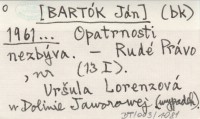 [BARTÓK Ján] (bk)
1961... Opatrnosti
nezbýva. - Rudé Právo
, nr (13 I).
Uršula Lorenzová
w Dolinie Jaworowej (wypadek).